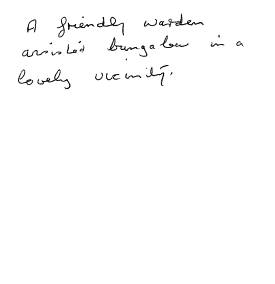 A friendly warden
assisted bungalow in a
lovely vicinity.